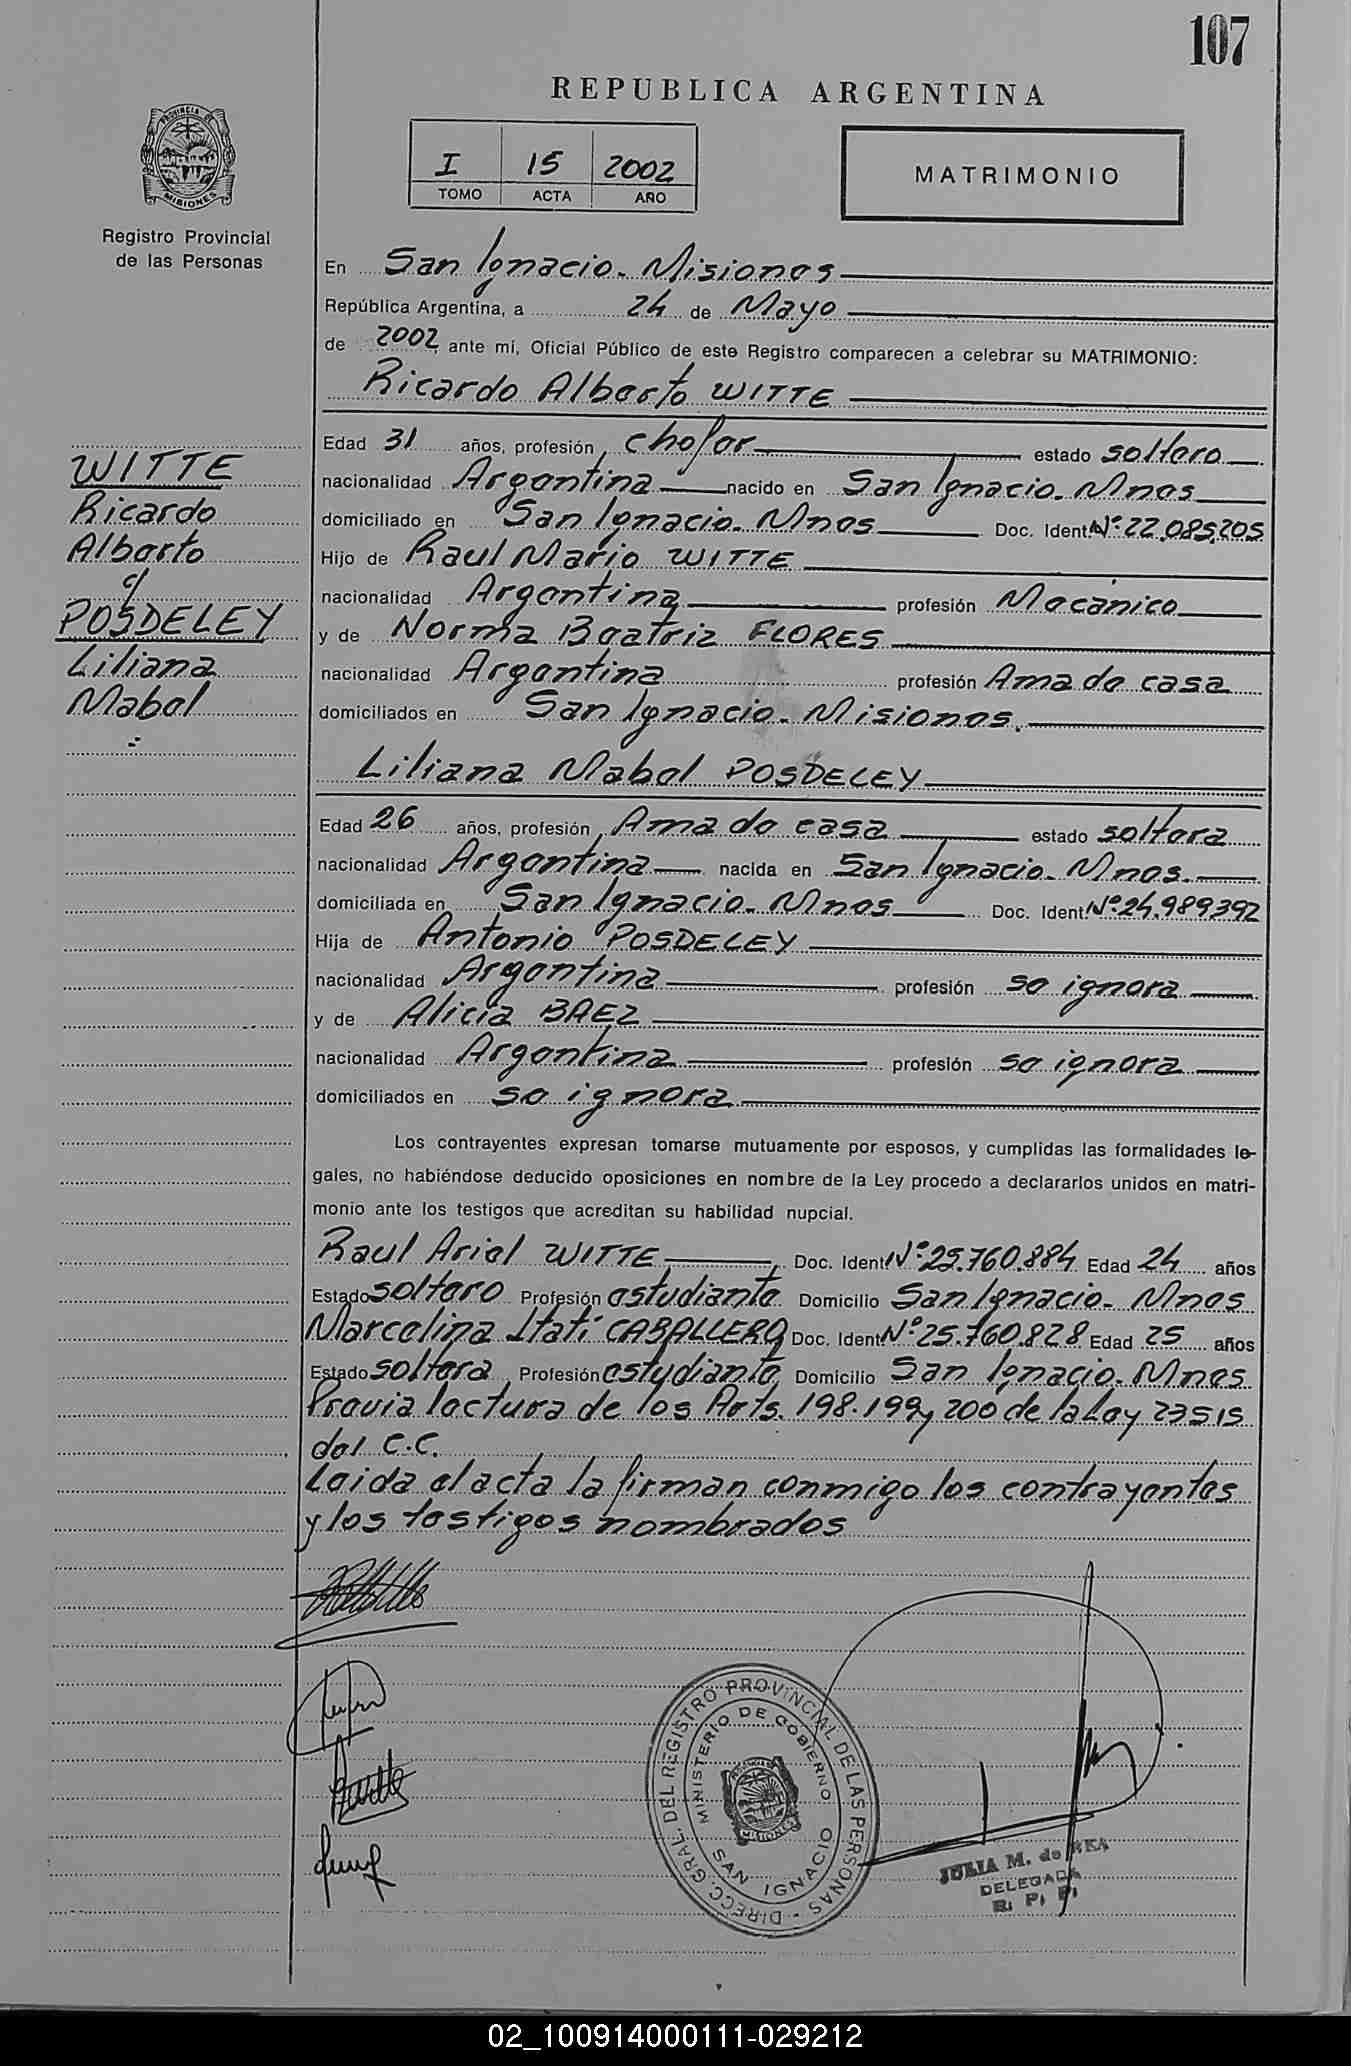 107
REPUBLICA ARGENTINA
PROVINCIA DE
MISIONES
Registro Provincial
de las Personas
I 15 2002
TOMO ACTA AÑO
MATRIMONIO
En San Ignacio - Misiones
República Argentina, a 24 de Mayo
de 2002 ante mí, Oficial Público de este Registro comparecen a celebrar su MATRIMONIO:
Ricardo Alberto WITTE
Edad 31 años, profesión chofer estado soltero
nacionalidad Argentina nacido en San Ignacio - Mnes
domiciliado en San Ignacio - Mnes Doc. Ident. Nº 22.085.205
Hijo de Raul Mario WITTE
nacionalidad Argentina profesión Mecánico
y de Norma Beatriz FLORES
nacionalidad Argentina profesión Ama de casa
domiciliados en San Ignacio - Misiones.
WITTE
Ricardo
Alberto
c/
POSDELEY
Liliana
Mabel
Liliana Mabel POSDELEY
Edad 26 años, profesión Ama de casa estado soltera
nacionalidad Argentina nacida en San Ignacio - Mnes.
domiciliada en San Ignacio - Mnes Doc. Ident Nº 24.989392
Hija de Antonio POSDELEY
nacionalidad Argentina profesión se ignora
y de Alicia BAEZ
nacionalidad Argentina profesión se ignora
domiciliados en se ignora
Los contrayentes expresan tomarse mutuamente por esposos, y cumplidas las formalidades le-
gales, no habiéndose deducido oposiciones en nombre de la Ley procedo a declararlos unidos en matri-
monio ante los testigos que acreditan su habilidad nupcial.
Raul Ariel WITTE Doc. Ident Nº 25.760.884 Edad 24 años
Estado soltero Profesión estudiante Domicilio San Ignacio - Mnes
Marcelina Itatí CABALLERO Doc. Ident. Nº 25.760.828 Edad 25 años
Estado soltera Profesión estudiante Domicilio San Ignacio - Mnes
Previa lectura de los Arts. 198.199 y 200 de la Ley 23515
del C.C.
Leida el acta la firman conmigo los contrayentes
y los testigos nombrados
DIRECC. GRAL. DEL REGISTRO PROVINCIAL DE LAS PERSONAS
MINISTERIO DE GOBIERNO
SAN IGNACIO
MISIONES
JULIA M. de
DELEGADA
R. P. P.
02_100914000111-029212